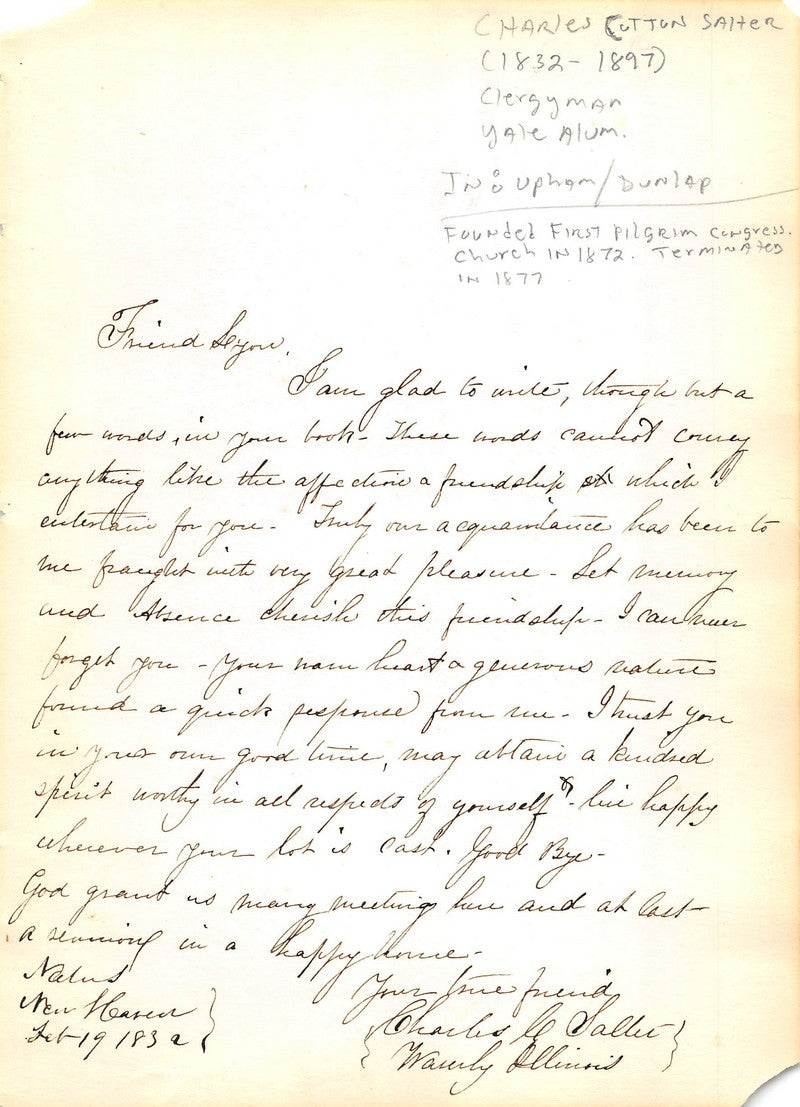 CHARles CUTTON SAlTER
(1832 - 1897)
Clergyman
YAle Alum.
IN: Upham/DUNlAp
FOUNded FIRST PilGRIM CONGRESS.
CHURCH IN 1872. TERMINATED
IN 1877
Friend Lyon,
I am glad to write, though but a
few words, in your book - These words cannot convey
anything like the affection & friendship which I
entertain for you - Truly our acquaintance has been to
me fraught with very great pleasure - Let memory
and Absence cherish this friendship - I can never
forget you - Your warm heart & generous nature
found a quick response from me - I trust you
in your own good time, may obtain a kindred
spirit worthy in all respects of yourself & live happy
wherever your lot is cast. Good Bye -
God grant us many meeting here and at last -
a reunion in a happy home -
Your true friend
Natus
New Haven
Feb 19 1832
Charles C Salter
Waverly Illinois